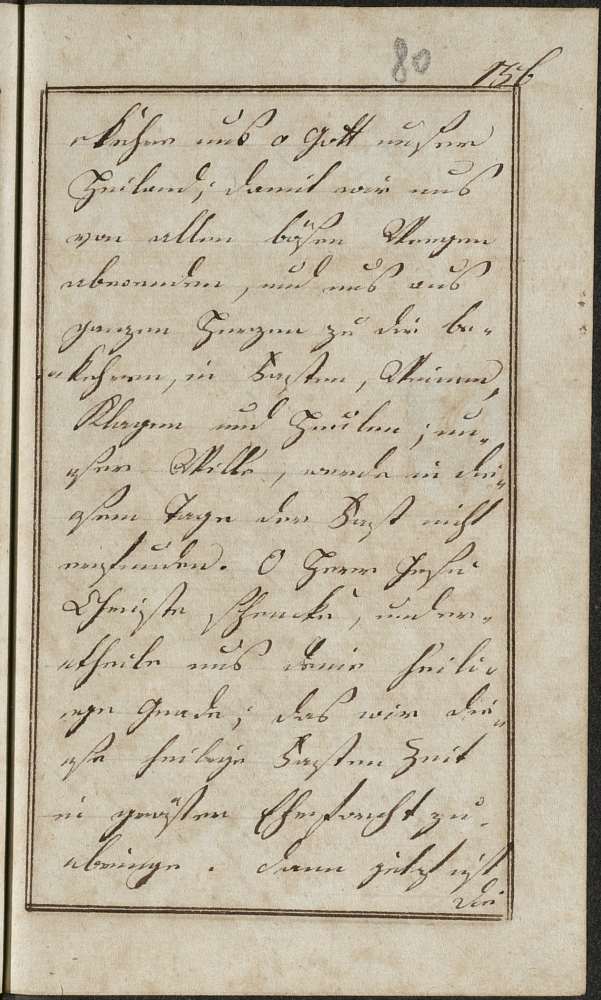 80 156
kehre uns o Gott unser
Heiland; damit wir uns
von allen bösen Weegen
abwenden, und uns aus
ganzen Herzen zu dir be-
kehren, in Fasten, Weinen,
Klagen und Heulen; un-
ser Wille, werde in die-
sem Tage der Fast nicht
erfunden. O Herr Jesu
Christe schencke, under-
theile uns deine heili-
ge Gnade; das wir die-
se heilige Fasten Zeit
in gröster Ehrforcht zu-
bringe. dann jetzt ist
die